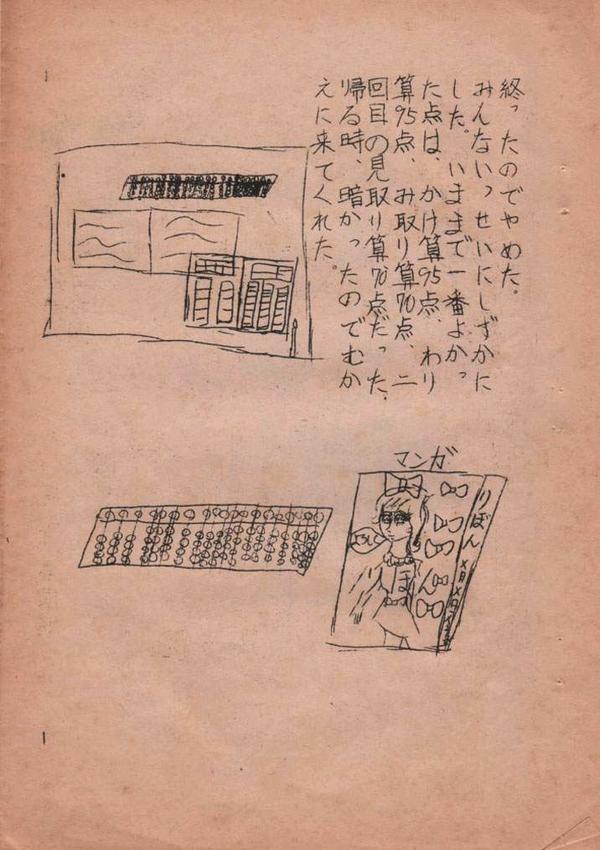 終ったのでやめた。
みんないっせいにしずかに
した。いままで一番よかっ
た点は、かけ算95点、わり
算95点、み取り算70点、二
回目の見取り算70点だった。
帰る時、暗かったのでむか
えに来てくれた。
マンガ
りぼん